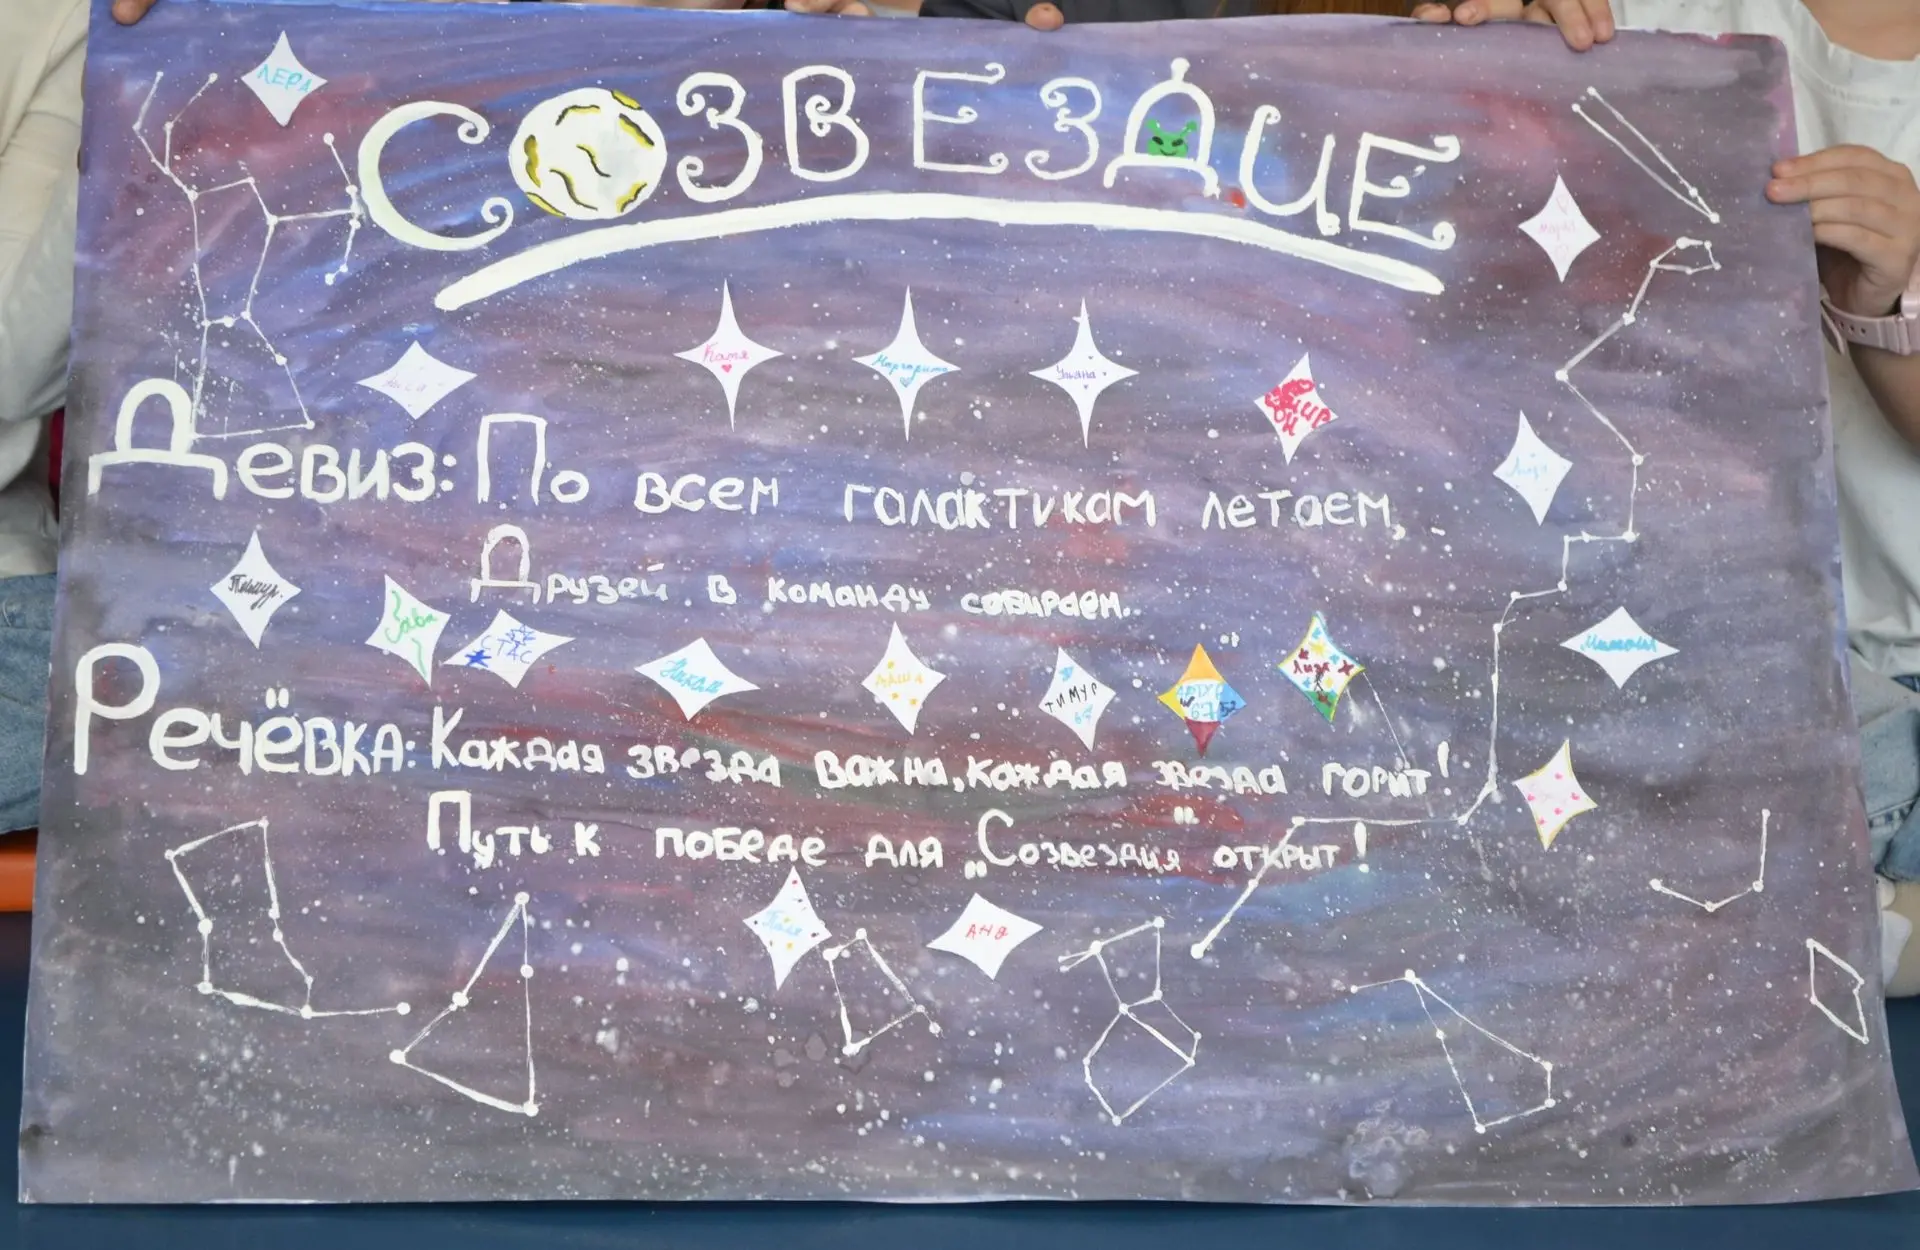 ЛЕРА
СОЗВЕЗДИЕ
Мария
Алиса
Катя
Маргарита
Ульяна
Лиза
Девиз: По всем галактикам летаем,
Друзей в команду собираем..
Тимур.
СТАС
ТИМУР
АРТУР
67 52
Лиза
Речёвка: Каждая звезда важна, каждая звезда горит!
Путь к победе для „Созвездия" открыт!
Поля
АНЯ